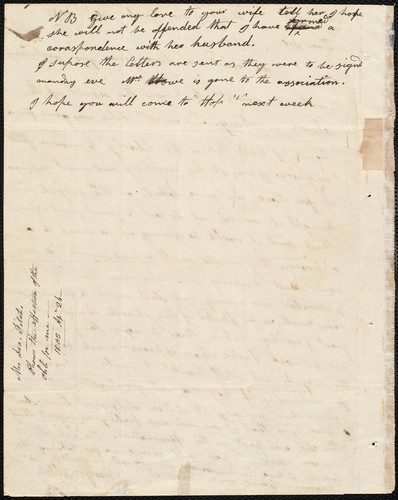 N B Give my love to your wife tell her I hope
she will not be offended that I have formed a
corraspondence with her husband.
I supose the letters are sent as they were to be signd
monday eve Mr Howe is gone to the association.
I hope you will come to Hop next week
Mrs Jos. Field.
Shows the affection of the
chh for me
1802